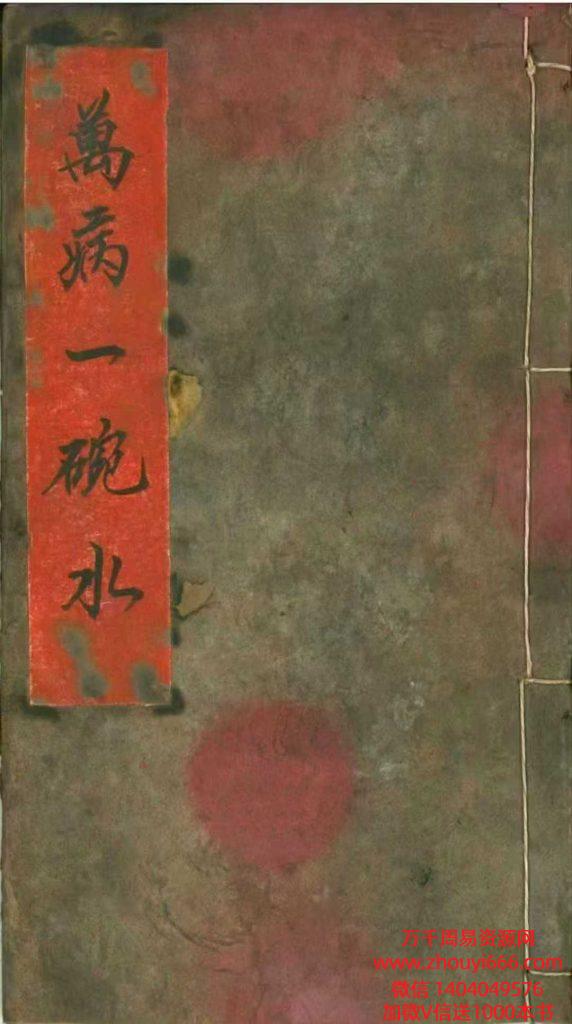 萬病一碗水
万千周易资源网
www.zhouyi666.com
微信 1404049576
加微V信送1000本书